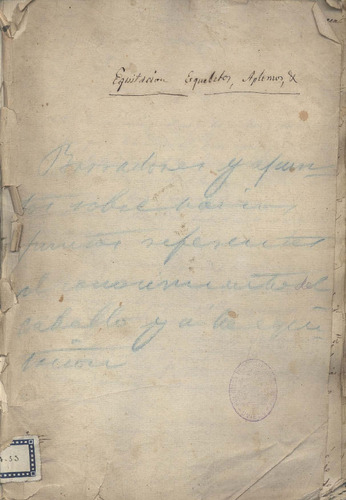 Equitacion Esqueletos, Aplomos, &
Borradores y apun-
tos sobre varios
puntos referentes
al conocimiento del
caballo y a la equi-
tación